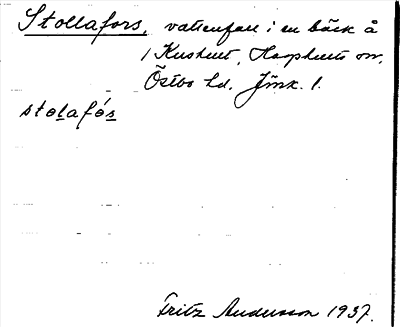 Stollafors, vattenfall i en bäck å
1 Kushult, Hagshults sn,
Östbo hd. Jönk. l.
stolafós
Fritz Andersson 1937.